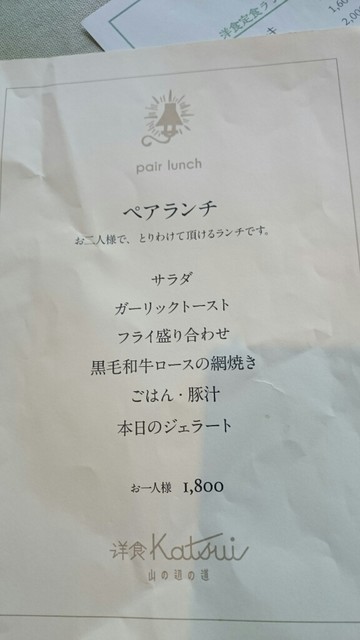 洋食定食ラン
1,60
2,00
キ
pair lunch
ペアランチ
お二人様で、とりわけて頂けるランチです。
サラダ
ガーリックトースト
フライ盛り合わせ
黒毛和牛ロースの網焼き
ごはん・豚汁
本日のジェラート
お一人様 1,800
洋食Katsui
山の辺の道